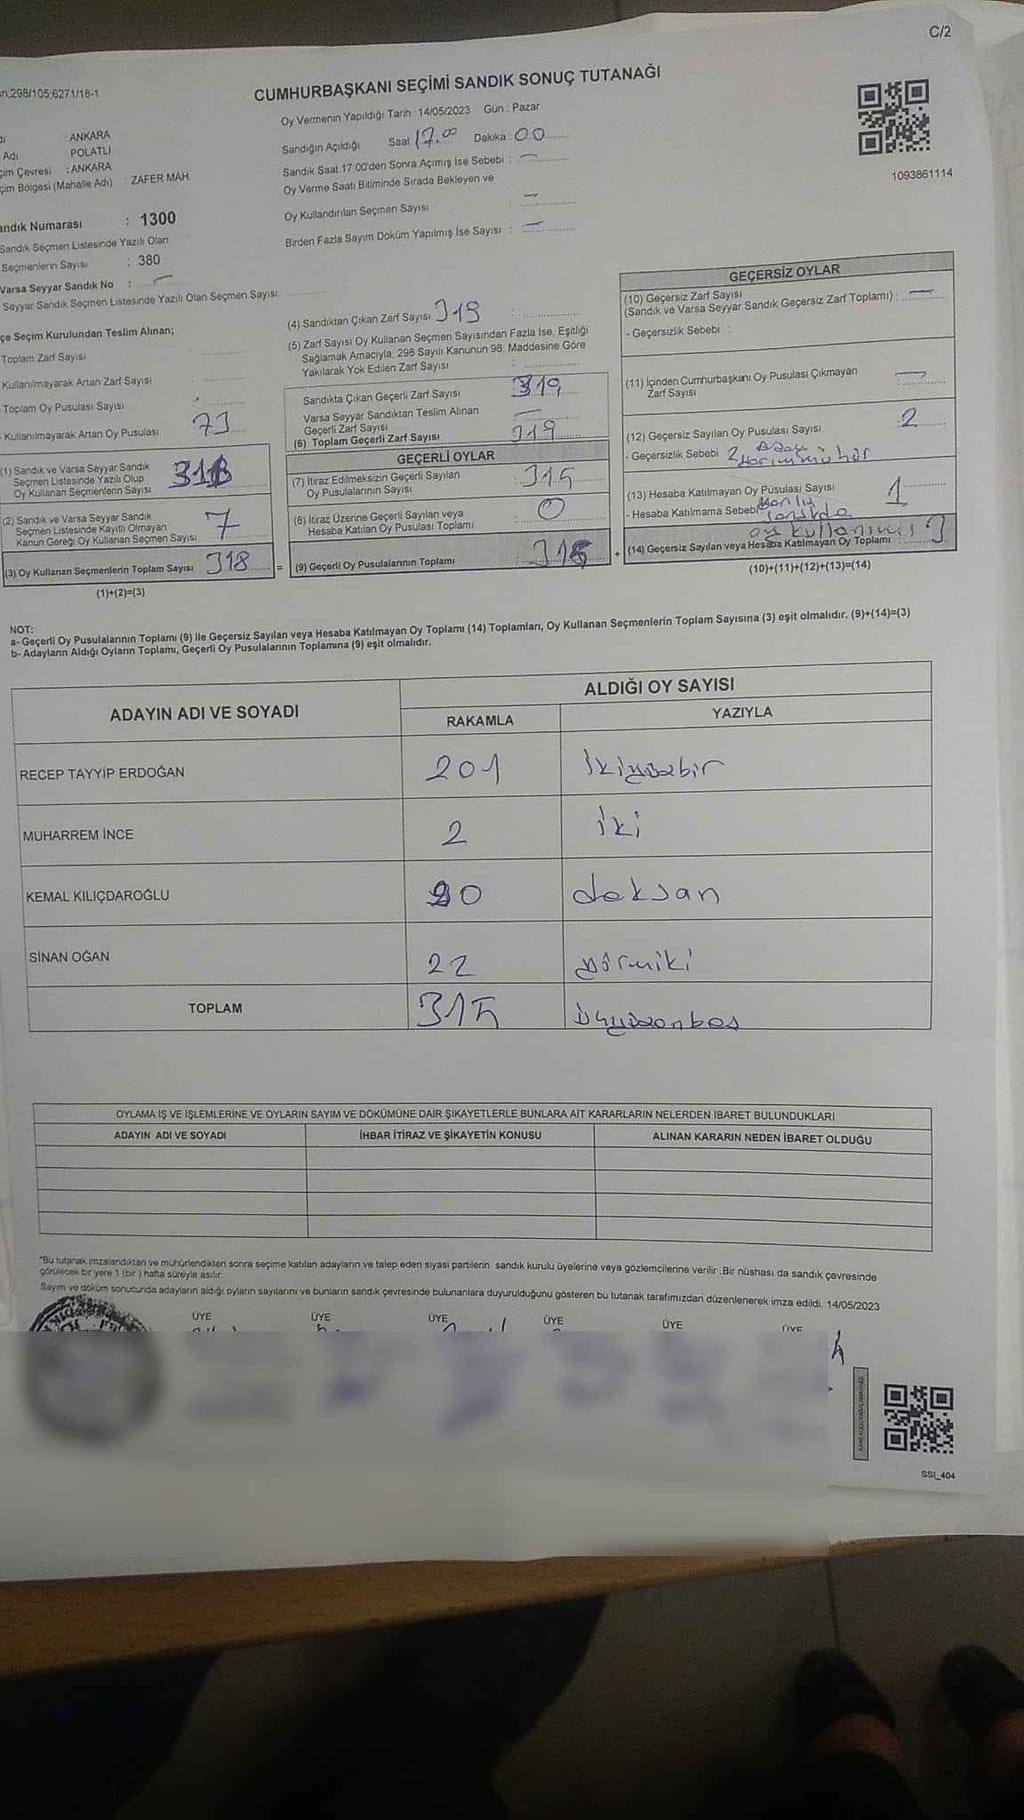 C/2
298/105,6271/18-1
CUMHURBAŞKANI SEÇİMİ SANDIK SONUÇ TUTANAĞI
1093861114
: ANKARA
Adı : POLATLI
çim Çevresi : ANKARA
çim Bölgesi (Mahalle Adı) : ZAFER MAH.
andık Numarası : 1300
Sandık Seçmen Listesinde Yazılı Olan
Seçmenlerin Sayısı : 380
Varsa Seyyar Sandık No : -
Seyyar Sandık Seçmen Listesinde Yazılı Olan Seçmen Sayısı
Oy Vermenin Yapıldığı Tarih : 14/05/2023 Gün : Pazar
Sandığın Açıldığı Saat 17.00 Dakika : 00
Sandık Saat 17:00'den Sonra Açımış İse Sebebi : -
Oy Verme Saati Bitiminde Sırada Bekleyen ve
Oy Kullandırılan Seçmen Sayısı : -
Birden Fazla Sayım Döküm Yapılmış İse Sayısı : -
çe Seçim Kurulundan Teslim Alınan;
Toplam Zarf Sayısı
Kullanılmayarak Artan Zarf Sayısı
Toplam Oy Pusulası Sayısı
Kullanılmayarak Artan Oy Pusulası 73
(1) Sandık ve Varsa Seyyar Sandık
Seçmen Listesinde Yazılı Olup
Oy Kullanan Seçmenlerin Sayısı
(2) Sandık ve Varsa Seyyar Sandık
Seçmen Listesinde Kayıtlı Olmayan
Kanun Gereği Oy Kullanan Seçmen Sayısı 7
(3) Oy Kullanan Seçmenlerin Toplam Sayısı 318
(1)+(2)=(3)
(4) Sandıktan Çıkan Zarf Sayısı 319
(5) Zarf Sayısı Oy Kullanan Seçmen Sayısından Fazla İse, Eşitliği
Sağlamak Amacıyla, 298 Sayılı Kanunun 98. Maddesine Göre
Yakılarak Yok Edilen Zarf Sayısı
Sandıkta Çıkan Geçerli Zarf Sayısı 319
Varsa Seyyar Sandıktan Teslim Alınan
Geçerli Zarf Sayısı -
(6) Toplam Geçerli Zarf Sayısı 319
GEÇERLİ OYLAR
(7) İtiraz Edilmeksizin Geçerli Sayılan
Oy Pusulalarının Sayısı : 315
(8) İtiraz Üzerine Geçerli Sayılan veya
Hesaba Katılan Oy Pusulası Toplamı : 0
= (9) Geçerli Oy Pusulalarının Toplamı : 315
GEÇERSİZ OYLAR
(10) Geçersiz Zarf Sayısı
(Sandık ve Varsa Seyyar Sandık Geçersiz Zarf Toplamı) : -
- Geçersizlik Sebebi :
(11) İçinden Cumhurbaşkanı Oy Pusulası Çıkmayan
Zarf Sayısı : -
(12) Geçersiz Sayılan Oy Pusulası Sayısı : 2
- Geçersizlik Sebebi 2 mühür
(13) Hesaba Katılmayan Oy Pusulası Sayısı 1
- Hesaba Katılmama Sebebi
oy kullanmış
+ (14) Geçersiz Sayılan veya Hesaba Katılmayan Oy Toplamı : 3
(10)+(11)+(12)+(13)=(14)
NOT:
a- Geçerli Oy Pusulalarının Toplamı (9) ile Geçersiz Sayılan veya Hesaba Katılmayan Oy Toplamı (14) Toplamları, Oy Kullanan Seçmenlerin Toplam Sayısına (3) eşit olmalıdır. (9)+(14)=(3)
b- Adayların Aldığı Oyların Toplamı, Geçerli Oy Pusulalarının Toplamına (9) eşit olmalıdır.
ADAYIN ADI VE SOYADI
ALDIĞI OY SAYISI
RAKAMLA YAZIYLA
RECEP TAYYİP ERDOĞAN 201 ikiyüzbir
MUHARREM İNCE 2 iki
KEMAL KILIÇDAROĞLU 90 doksan
SİNAN OĞAN 22 yirmiki
TOPLAM 315 üçyüzonbeş
OYLAMA İŞ VE İŞLEMLERİNE VE OYLARIN SAYIM VE DÖKÜMÜNE DAİR ŞİKAYETLERLE BUNLARA AİT KARARLARIN NELERDEN İBARET BULUNDUKLARI
ADAYIN ADI VE SOYADI İHBAR İTİRAZ VE ŞİKAYETİN KONUSU ALINAN KARARIN NEDEN İBARET OLDUĞU
*Bu tutanak imzalandıktan ve mühürlendikten sonra seçime katılan adayların ve talep eden siyasi partilerin sandık kurulu üyelerine veya gözlemcilerine verilir. Bir nüshası da sandık çevresinde
görülecek bir yere 1 (bir) hafta süreyle asılır.
Sayım ve döküm sonucunda adayların aldığı oyların sayılarını ve bunların sandık çevresinde bulunanlara duyurulduğunu gösteren bu tutanak tarafımızdan düzenlenerek imza edildi. 14/05/2023
ÜYE ÜYE ÜYE ÜYE ÜYE ÜYE
SSI_404